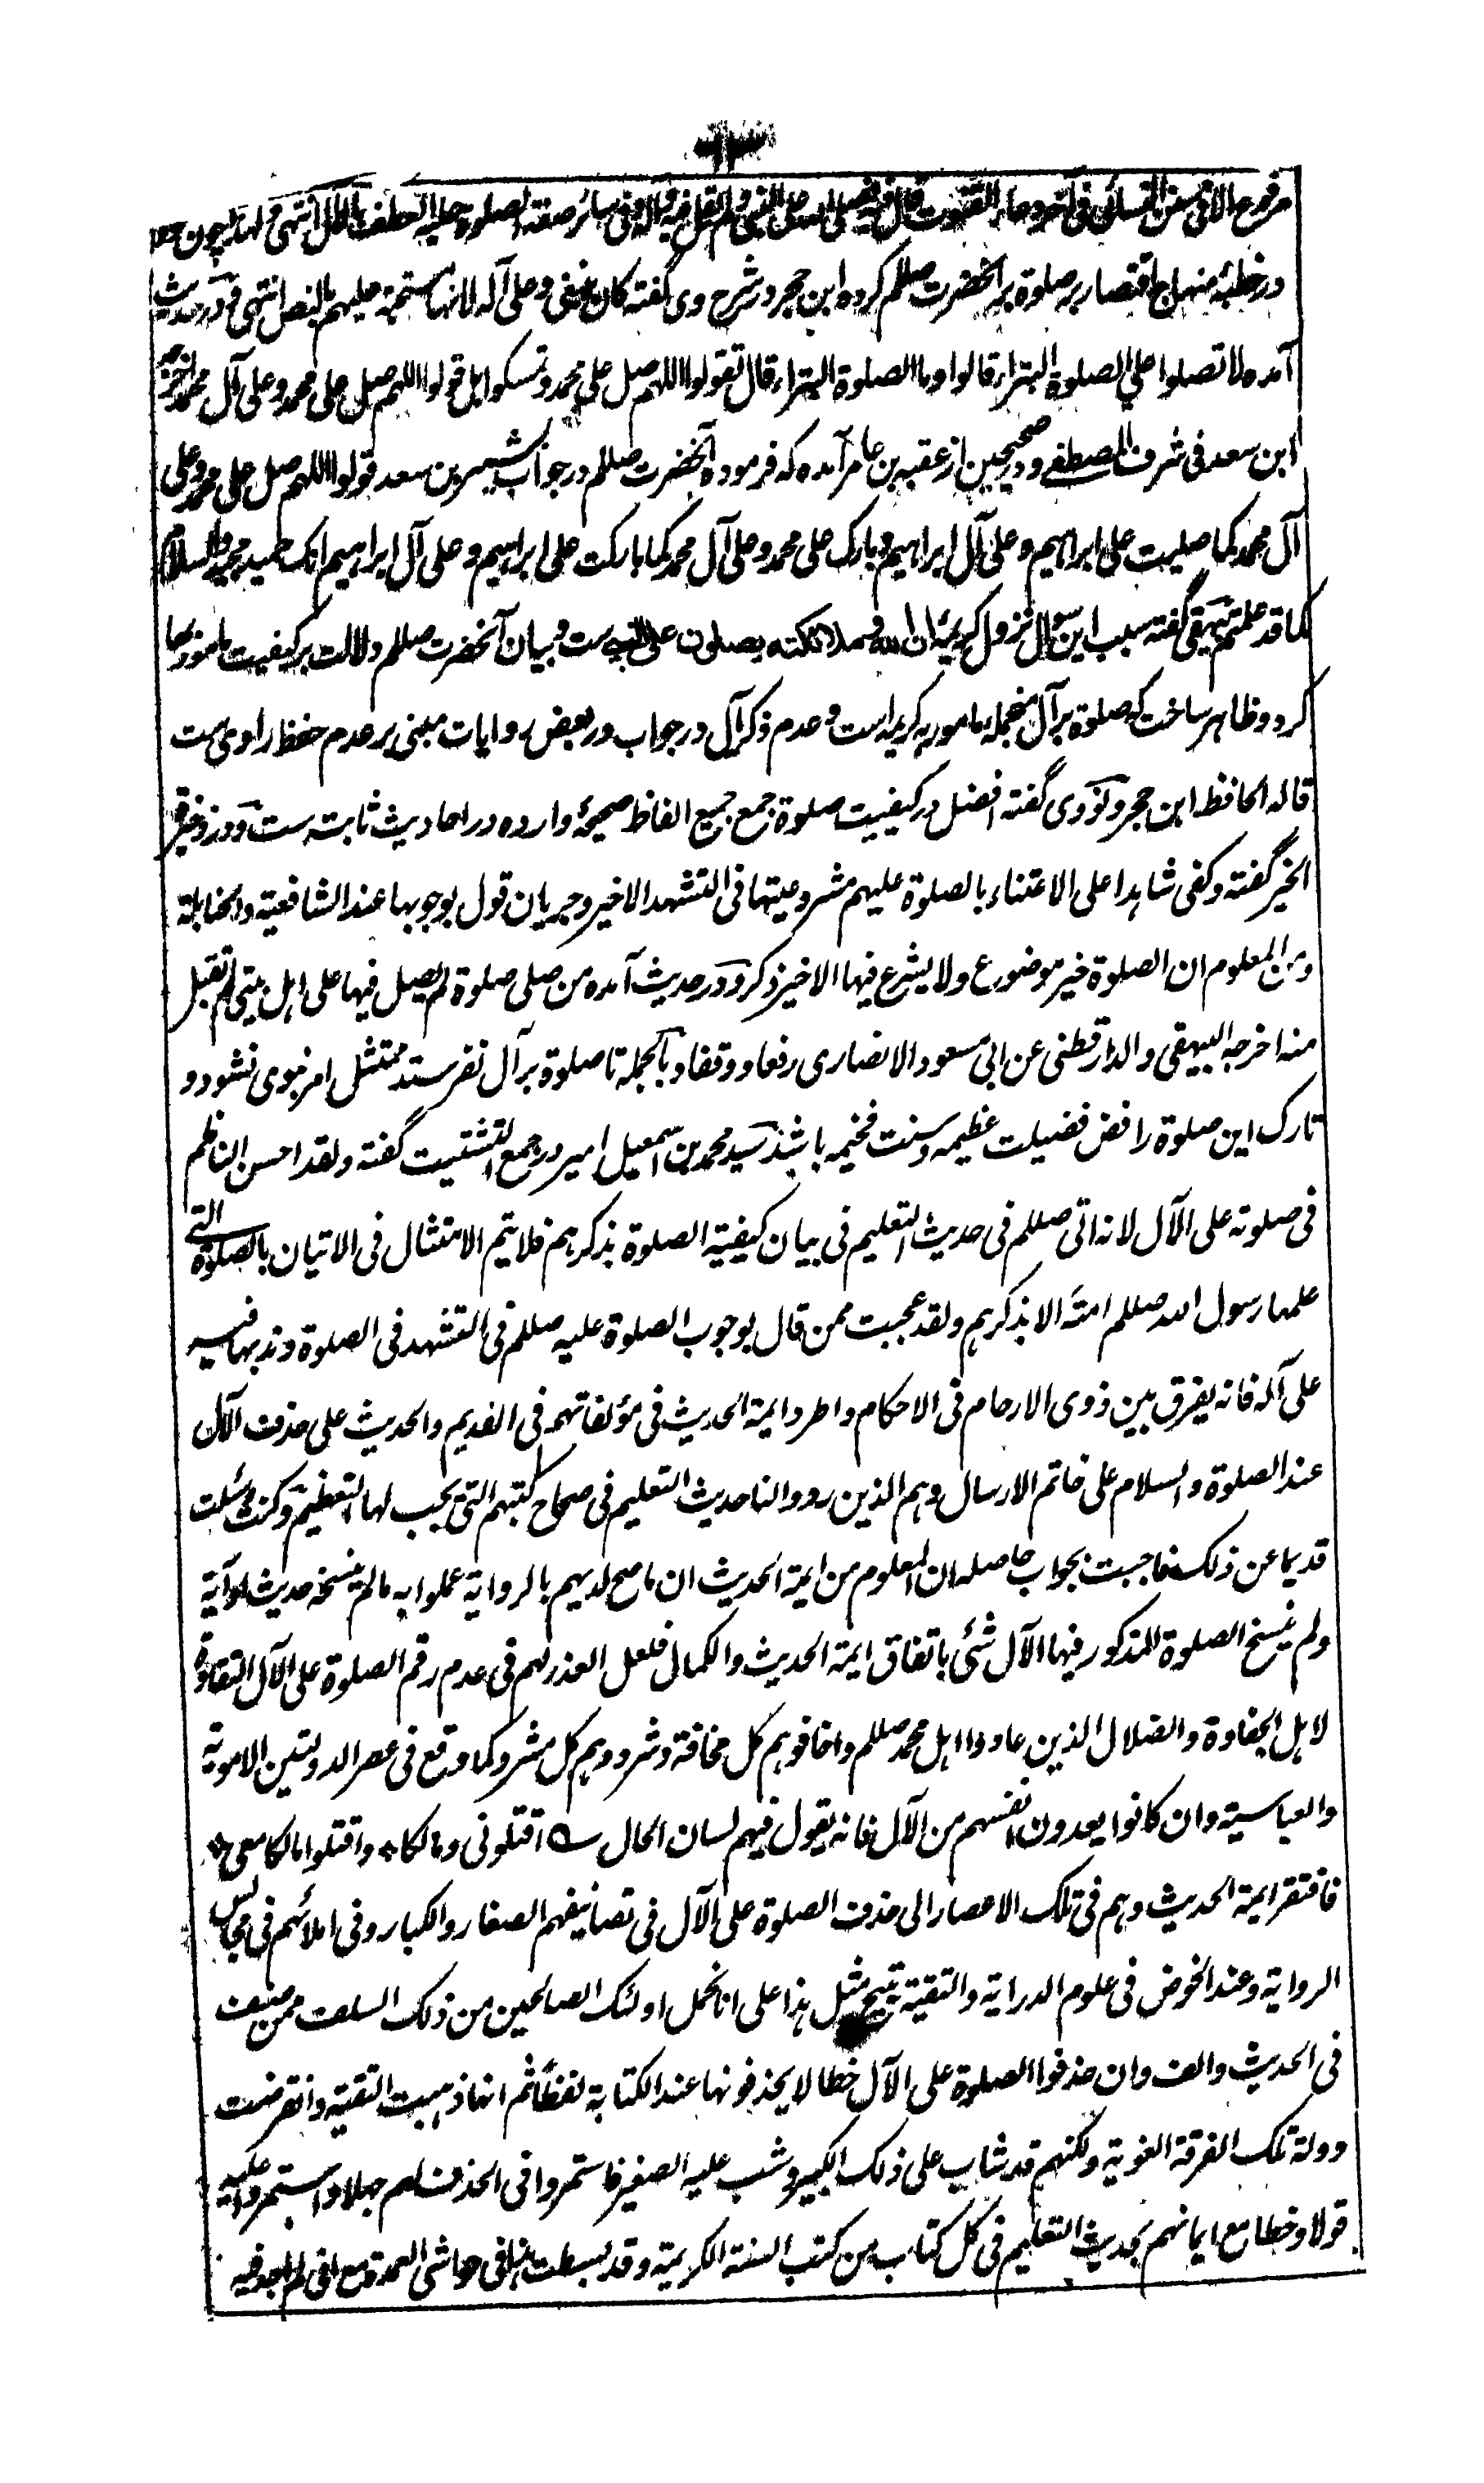 مرفوع الا فی سنن النسائی فی آخر دعاء القنوت قال فیه وصلی الله علی النبی ولم یقل فیه وآله وفی سائر صفة الصلوة علیه العطف بالآل انتهی ولهذا چون
در خطبهٔ منهاج اقتصار بر صلوة بر آنحضرت صللم کرده ابن حجر در شرح وی گفته کان ینبغی وعلی آله لانها مستحبة علیهم بالنص انتهی ودر حدیث
آمده لا تصلوا علی الصلوة البتراء قالوا وما الصلوة البتراء قال تقولوا اللهم صل علی محمد وتمسکوا بل قولوا اللهم صل علی محمد وعلی آل محمد اخرجه
ابن سعد فی شرف المصطفے ودر صحیحین از عقبه بن عامر آمده که فرموده آنحضرت صللم در جواب بشیر بن سعد قولوا اللهم صل علی محمد وعلی
آل محمد کما صلیت علی ابراهیم وعلی آل ابراهیم وبارک علی محمد وعلی آل محمد کما بارکت علی ابراهیم وعلی آل ابراهیم انک حمید مجید والسلام
کما قد علمتم بیهقی گفته سبب این سوال نزول کریمهٔ ان الله وملائکته یصلون علی النبی ست وبیان آنحضرت صللم دلالت بر کیفیت مامور بها
کرد وظاهر ساخت که صلوة بر آل منجمله مامور به کریمه است وعدم ذکر آل در جواب در بعض روایات مبنی بر عدم حفظ راوی ست
قاله الحافظ ابن حجر ونووی گفته افضل در کیفیت صلوة جمع جمیع الفاظ صحیحهٔ وارده در احادیث ثابته ست ودر ذخیرة
الخیر گفته وکفی شاهدا علی الاعتناء بالصلوة علیهم مشروعیتها فی التشهد الاخیر وجریان قول بوجوبها عند الشافعیة والحنابلة
ومن المعلوم ان الصلوة خیر موضوع ولا یشرع فیها الا خیر ذکر ودر حدیث آمده من صلی صلوة لم یصل فیها علی اهل بیتی لم تقبل
منه اخرجه البیهقی والدارقطنی عن ابی مسعود الانصاری رفعا ووقفا وبالجمله تا صلوة بر آل نفرستد ممتثل امر نبوی نشود و
تارک این صلوة رافض فضیلت عظیمه وسنت فخیمه باشد سید محمد بن اسمعیل امیر در جمع التشتیت گفته ولقد احسن الناظم
فی صلوته علی الآل لانه اتی صللم فی حدیث التعلیم فی بیان کیفیة الصلوة بذکرهم فلا یتم الامتثال فی الاتیان بالصلوة التی
علمها رسول الله صللم امته الا بذکرهم ولقد عجبت ممن قال بوجوب الصلوة علیه صللم فی التشهد فی الصلوة وندبها فیه
علی آله فانه یفرق بین ذوی الارحام فی الاحکام واطرد ایمة الحدیث فی مؤلفاتهم فی القدیم والحدیث علی حذف الآل
عند الصلوة والسلام علی خاتم الارسال وهم الذین رووا لنا حدیث التعلیم فی صحاح کتبهم التی یجب لها التعظیم وکنت سئلت
قدیما عن ذلک فاجبت بجواب حاصله ان المعلوم من ایمة الحدیث ان ما صح لدیهم بالروایة عملوا به ما لم ینسخه حدیث او آیة
ولم ینسخ الصلوة المذکور فیها الآل شئ باتفاق ایمة الحدیث والکمال فلعل العذر لهم فی عدم رقم الصلوة علی الآل التقاوة
لاهل الجفاوة والضلال الذین عادوا اهل محمد صللم واخافوهم کل مخافة وشردوهم کل مشرد کما وقع فی عصر الدولتین الامویة
والعباسیة وان کانوا یعدون انفسهم من الآل فانه یقول فیهم لسان الحال ے اقتلونی ومالکا * واقتلوا مالکا معی *
فافتقر ایمة الحدیث وهم فی تلک الاعصار الی حذف الصلوة علی الآل فی تصانیفهم الصغار والکبار وفی املائهم فی مجالس
الروایة وعند الخوض فی علوم الدرایة والتقیة تبیح مثل هذا علی انا نحمل اولئک الصالحین من ذلک السلف ممن صنف
فی الحدیث والف وان حذفوا الصلوة علی الآل خطا لا یحذفونها عند الکتابة لفظا ثم انها ذهبت التقیة وانقرضت
دولة تلک الفرقة الغویة ولکنهم قد شاب علی ذلک الکبیر وشب علیه الصغیر فاستمروا فی الحذف لهم جهلا واستمروا علیه
قولا وخطا مع ایمانهم بحدیث التعلیم فی کل کتاب من کتب السنة الکریمة وقد بسطت هذا فی حواشی العمدة مع انی لم اجد فیه